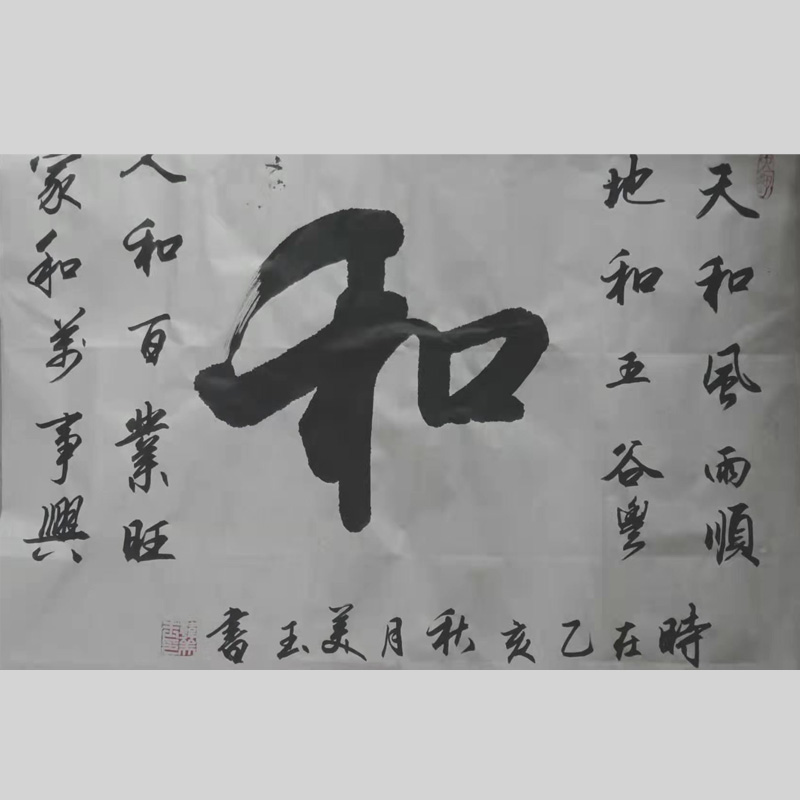 天和風雨順
地和五谷豐
和
人和百業旺
家和萬事興
時在乙亥秋月美玉書